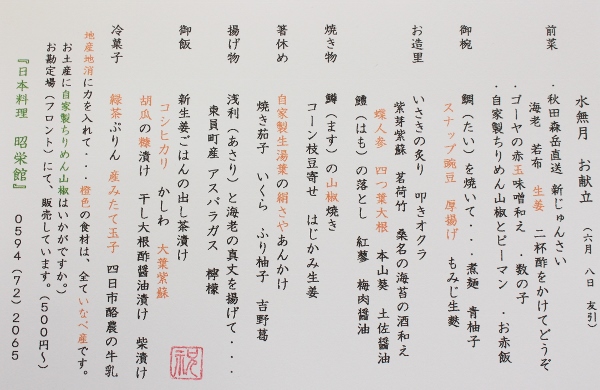 水無月　お献立　（六月　八日　友引）
前菜　・秋田森岳直送 新じゅんさい
海老　若布　生姜　二杯酢をかけてどうぞ
・ゴーヤの赤玉味噌和え　・数の子
・自家製ちりめん山椒とピーマン　・お赤飯
御椀　鯛（たい）を焼いて・・・煮麺　青柚子
スナップ豌豆　厚揚げ　もみじ生麩
お造里　いさきの炙り　叩きオクラ
紫芽紫蘇　茗荷竹　桑名の海苔の酒和え
蝶人参　四つ葉大根　本山葵　土佐醤油
鱧（はも）の落とし　紅蓼　梅肉醤油
焼き物　鱒（ます）の山椒焼き
コーン枝豆寄せ　はじかみ生姜
箸休め　自家製生湯葉の絹さやあんかけ
焼き茄子　いくら　ふり柚子　吉野葛
揚げ物　浅利（あさり）と海老の真丈を揚げて・・・
東員町産 アスパラガス　檸檬
御飯　新生姜ごはんの出し茶漬け
コシヒカリ　かしわ　大葉紫蘇
胡瓜の糠漬け　干し大根酢醤油漬け　柴漬け
冷菓子　緑茶ぷりん　産みたて玉子　四日市酪農の牛乳
地産地消に力を入れて・・・橙色の食材は、全ていなべ産です。
お土産に自家製ちりめん山椒はいかがですか。）
お勘定場（フロント）にて、販売しています。（５００円～）
『日本料理　昭栄館』　０５９４（７２）２０６５
祝